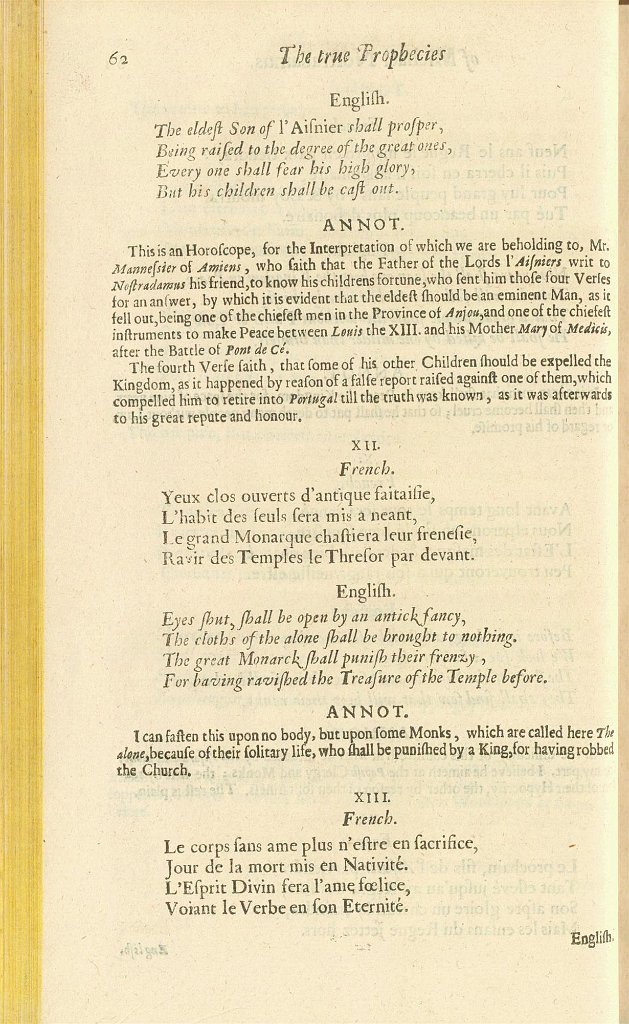 62 The true Prophecies
Engliſh.
The eldeſt Son of l'Aiſnier shall proſper,
Being raiſed to the degree of the great ones,
Every one shall fear his high glory,
But his children shall be caſt out.
ANNOT.
This is an Horoſcope, for the Interpretation of which we are beholding to, Mr.
Manneſsier of Amiens, who ſaith that the Father of the Lords l'Aiſniers writ to
Noſtradamus his friend, to know his childrens fortune, who ſent him thoſe four Verſes
for an anſwer, by which it is evident that the eldeſt ſhould be an eminent Man, as it
fell out, being one of the chiefeſt men in the Province of Anjou, and one of the chiefeſt
inſtruments to make Peace between Louis the XIII. and his Mother Mary of Medicis,
after the Battle of Pont de Cé.
The fourth Verſe ſaith, that ſome of his other Children ſhould be expelled the
Kingdom, as it happened by reaſon of a falſe report raiſed againſt one of them, which
compelled him to retire into Portugal till the truth was known, as it was afterwards
to his great repute and honour.
XII.
French.
Yeux clos ouverts d'antique faitaiſie,
L'habit des ſeuls ſera mis a neant,
Le grand Monarque chaſtiera leur freneſie,
Ravir des Temples le Threſor par devant.
Engliſh.
Eyes ſhut, ſhall be open by an antick fancy,
The cloths of the alone ſhall be brought to nothing.
The great Monarck ſhall puniſh their frenzy,
For having raviſhed the Treaſure of the Temple before.
ANNOT.
I can faſten this upon no body, but upon ſome Monks, which are called here The
alone, becauſe of their ſolitary life, who ſhall be puniſhed by a King, for having robbed
the Church.
XIII.
French.
Le corps ſans ame plus n'eſtre en ſacrifice,
Jour de la mort mis en Nativité.
L'Eſprit Divin fera l'ame fœlice,
Voiant le Verbe en ſon Eternité.
Engliſh.